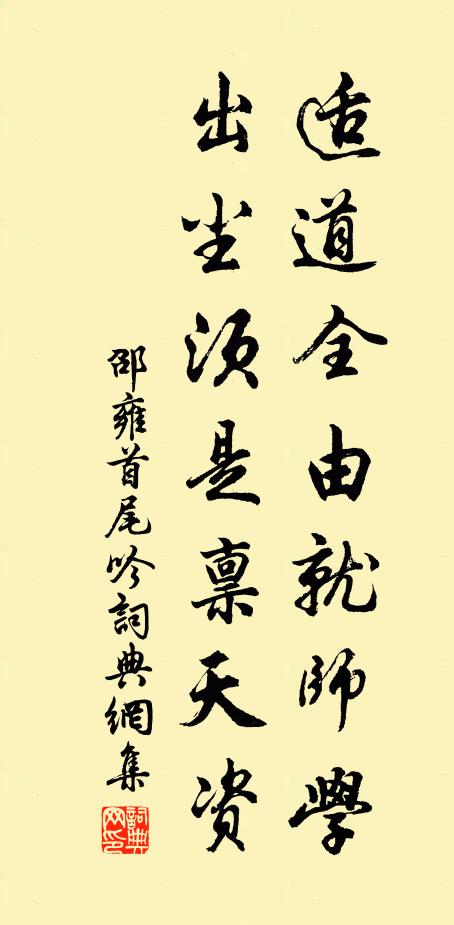 适道全由就師學
出尘須是禀天资
邵雍首尾吟詞典網集
詞典網印